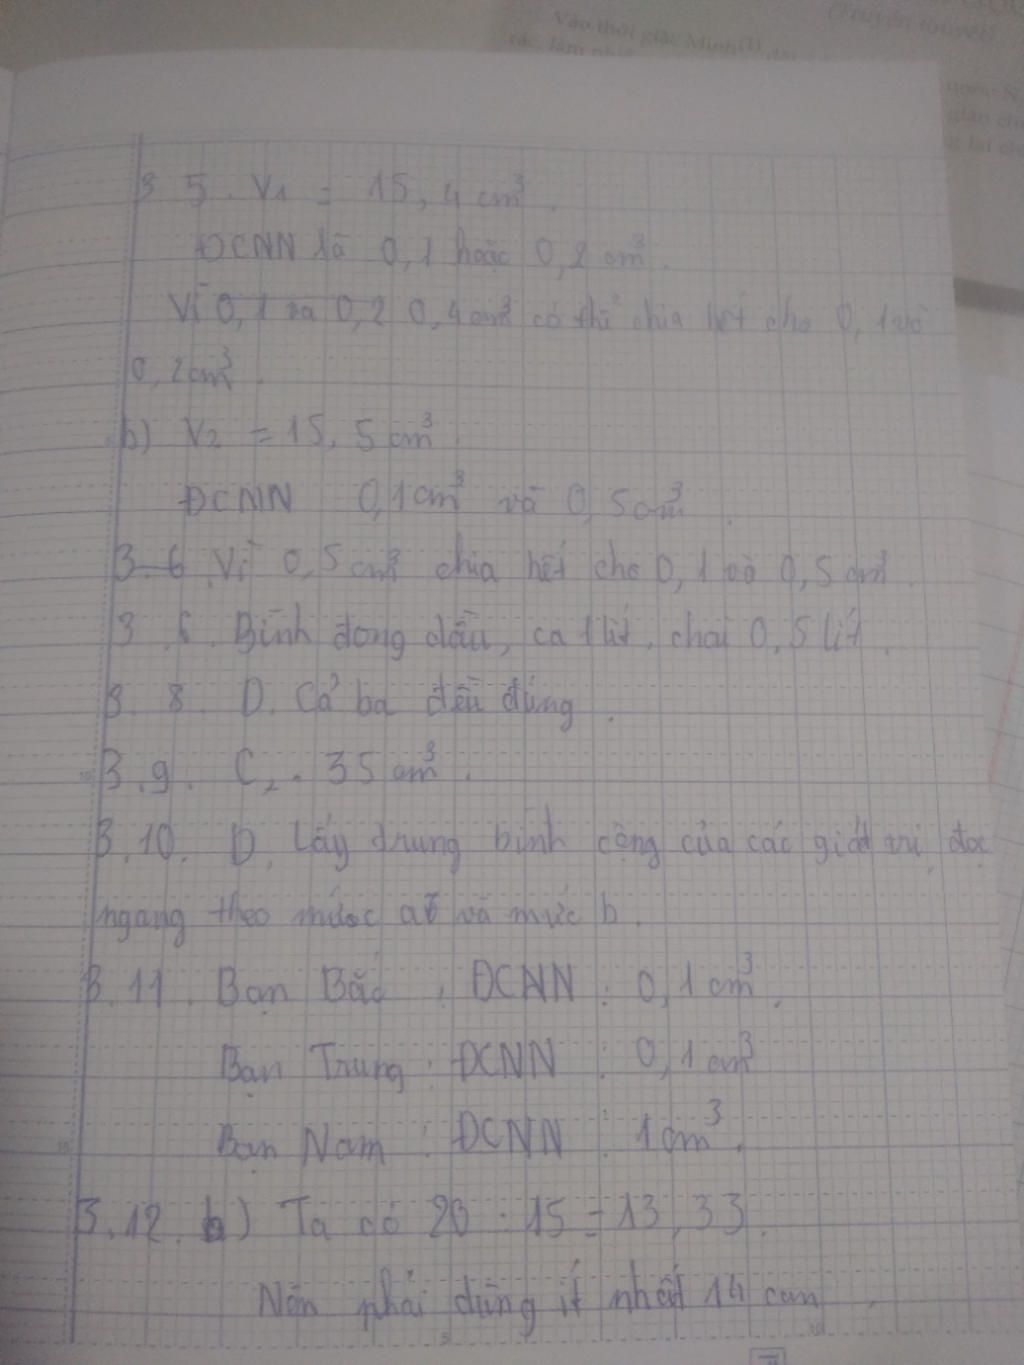 (Truyền thuyết)
Vào thời giặc Minh(1)
3 5. V1 = 15,4 cm³.
ĐCNN là 0,1 hoặc 0,2 cm³.
Vì 0,1 và 0,2 0,4cm³ có thể chia hết cho 0,1 và
0,2cm³.
b) V2 = 15,5 cm³.
ĐCNN 0,1cm³ và 0,5cm³.
3.6 Vì 0,5cm³ chia hết cho 0,1 và 0,5 cm³.
3.6. Bình đong dầu, ca 1 lít, chai 0,5 lít.
3.8. D. Cả ba đều đúng.
3.9. C, . 35 cm³.
3.10. D. Lấy trung bình cộng của các giá trị đọc
ngang theo mức a và mức b.
3.11. Bạn Bắc : ĐCNN : 0,1cm³.
Bạn Trung : ĐCNN : 0,1 cm³
Bạn Nam : ĐCNN : 1cm³.
3.12. b) Ta có 20 : 15 = 13,33.
Nên phải dùng ít nhất 14 can.